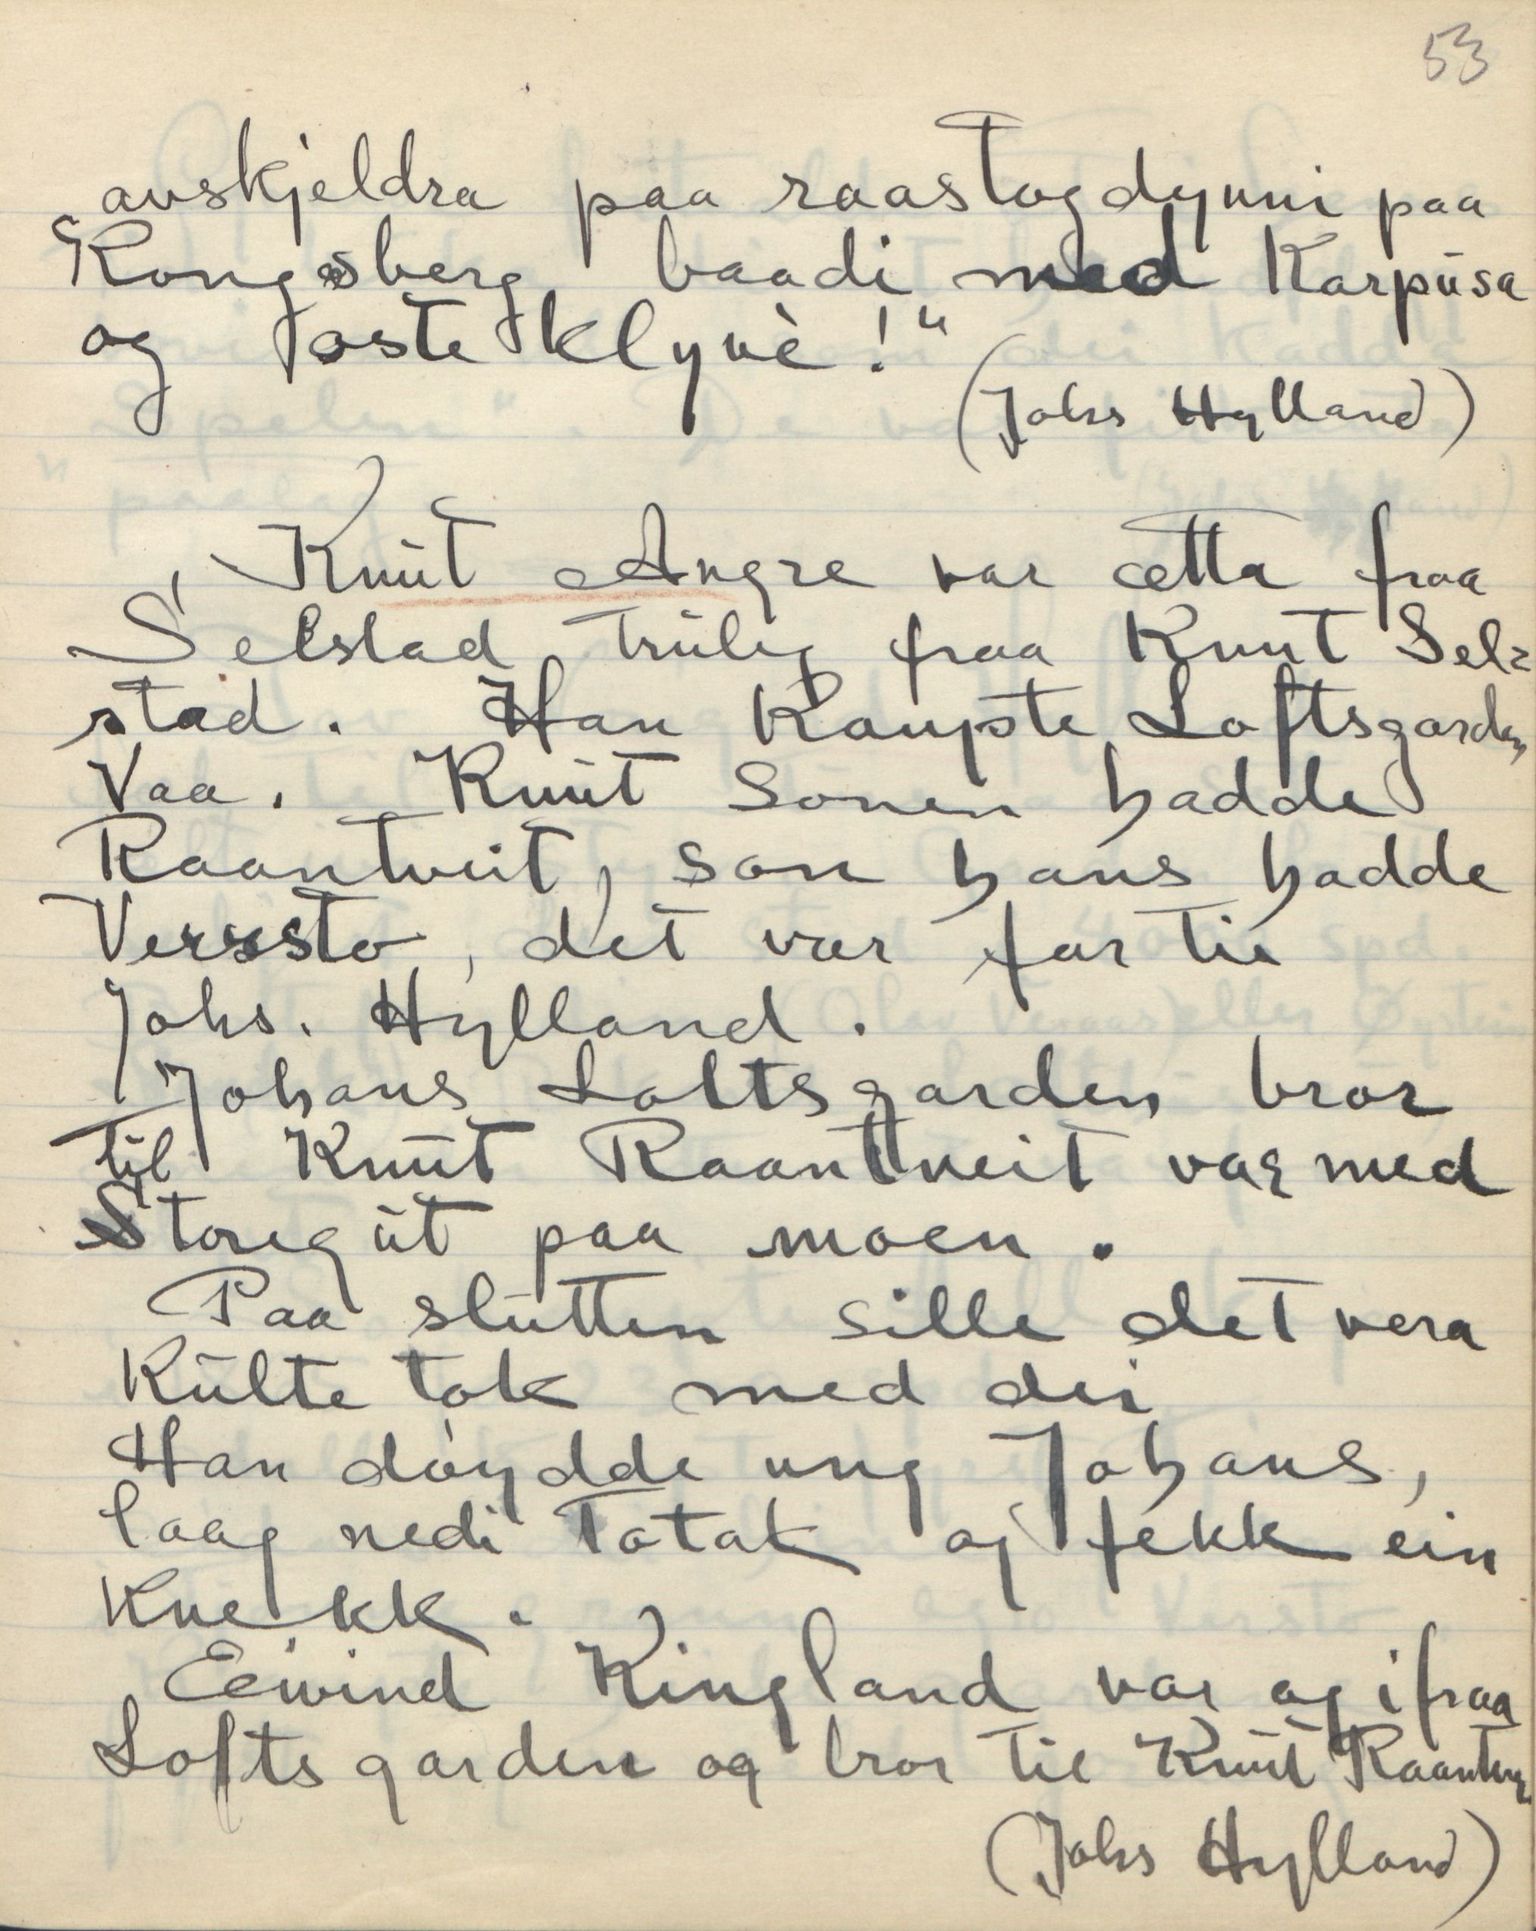 53
avskjeldra paa raastogdynni paa
Kongsberg baadi med Karpusa
og osteklyve!"
(Johs Hylland)
Knut Angre var ætta fraa
Selstad, trulig fraa Knut Sel-
stad. Han kaupte Loftsgarden,
Vaa. Knut sonen hadde
Raantveit, son hans hadde
Versto, det var far til
Johs. Hylland.
Johans Loftsgarden bror
til Knut Raantveit var med
Storegut paa moen.
Paa slutten sille det vera
Kultetok med dei
Han døydde ung Johans,
laag nedi Totak og fekk ein
Knekk.
Eivind Kingland var og ifraa
Loftsgarden og bror til Knut
(Johs Hylland)